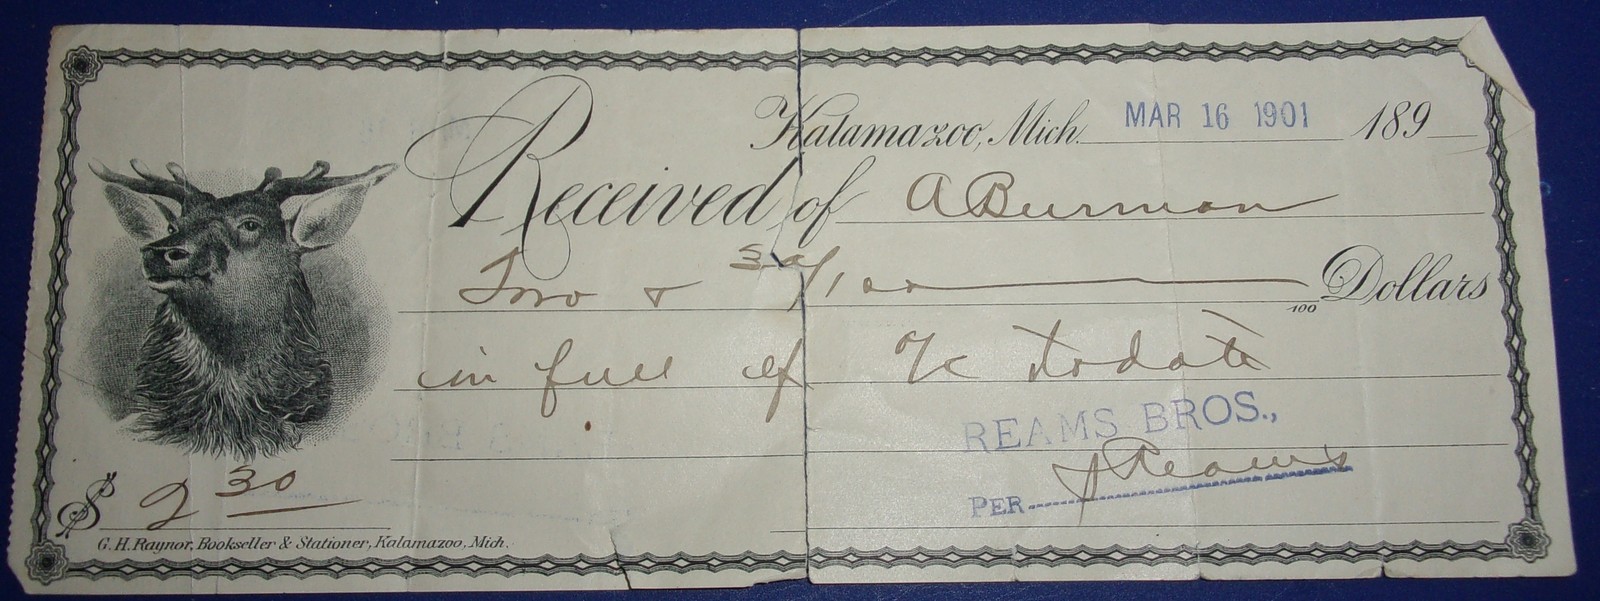 Kalamazoo, Mich. MAR 16 1901 189
Received of A Burman
Two & 30/100 100 Dollars
in full of a/c to date
REAMS BROS.,
PER Reams
$ 2 30
G. H. Raynor, Bookseller & Stationer, Kalamazoo, Mich.